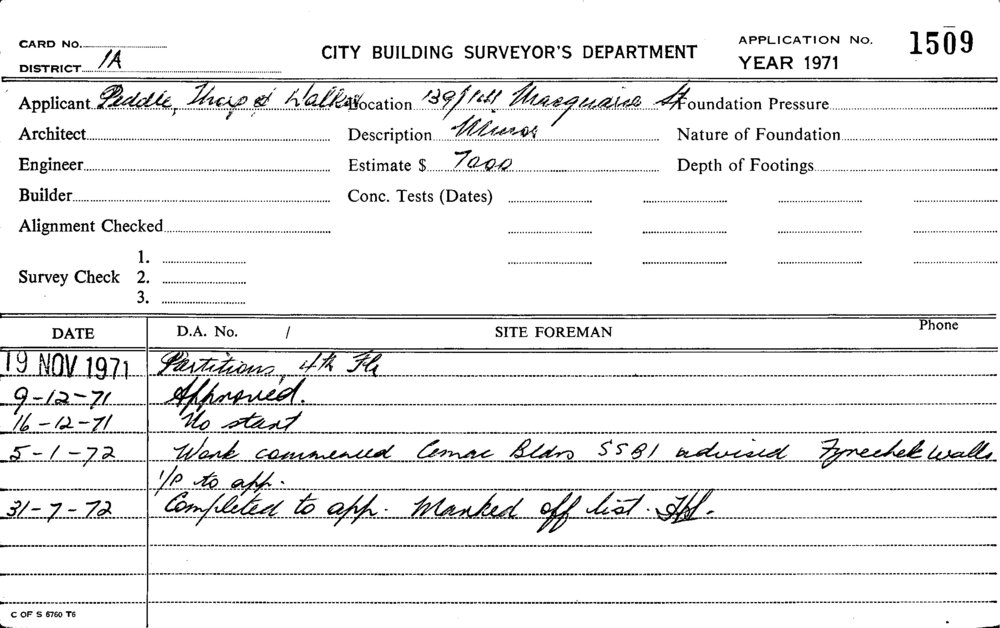 CARD No.
DISTRICT 1A
CITY BUILDING SURVEYOR'S DEPARTMENT
APPLICATION No. 1509
YEAR 1971
Applicant Peddle, Thorp & Walker Location 139/141 Macquarie St Foundation Pressure
Architect Description Minor Nature of Foundation
Engineer Estimate $ 7000 Depth of Footings
Builder Conc. Tests (Dates)
Alignment Checked
1.
Survey Check 2.
3.
DATE D.A. No. / SITE FOREMAN Phone
19 NOV 1971 Partitions, 4th Flr
9-12-71 Approved.
16-12-71 No start
5-1-72 Work commenced Cemac Bldrs advised Fyrechek walls
1/P to app.
31-7-72 Completed to app. Marked off list.
C OF S 6760 T6